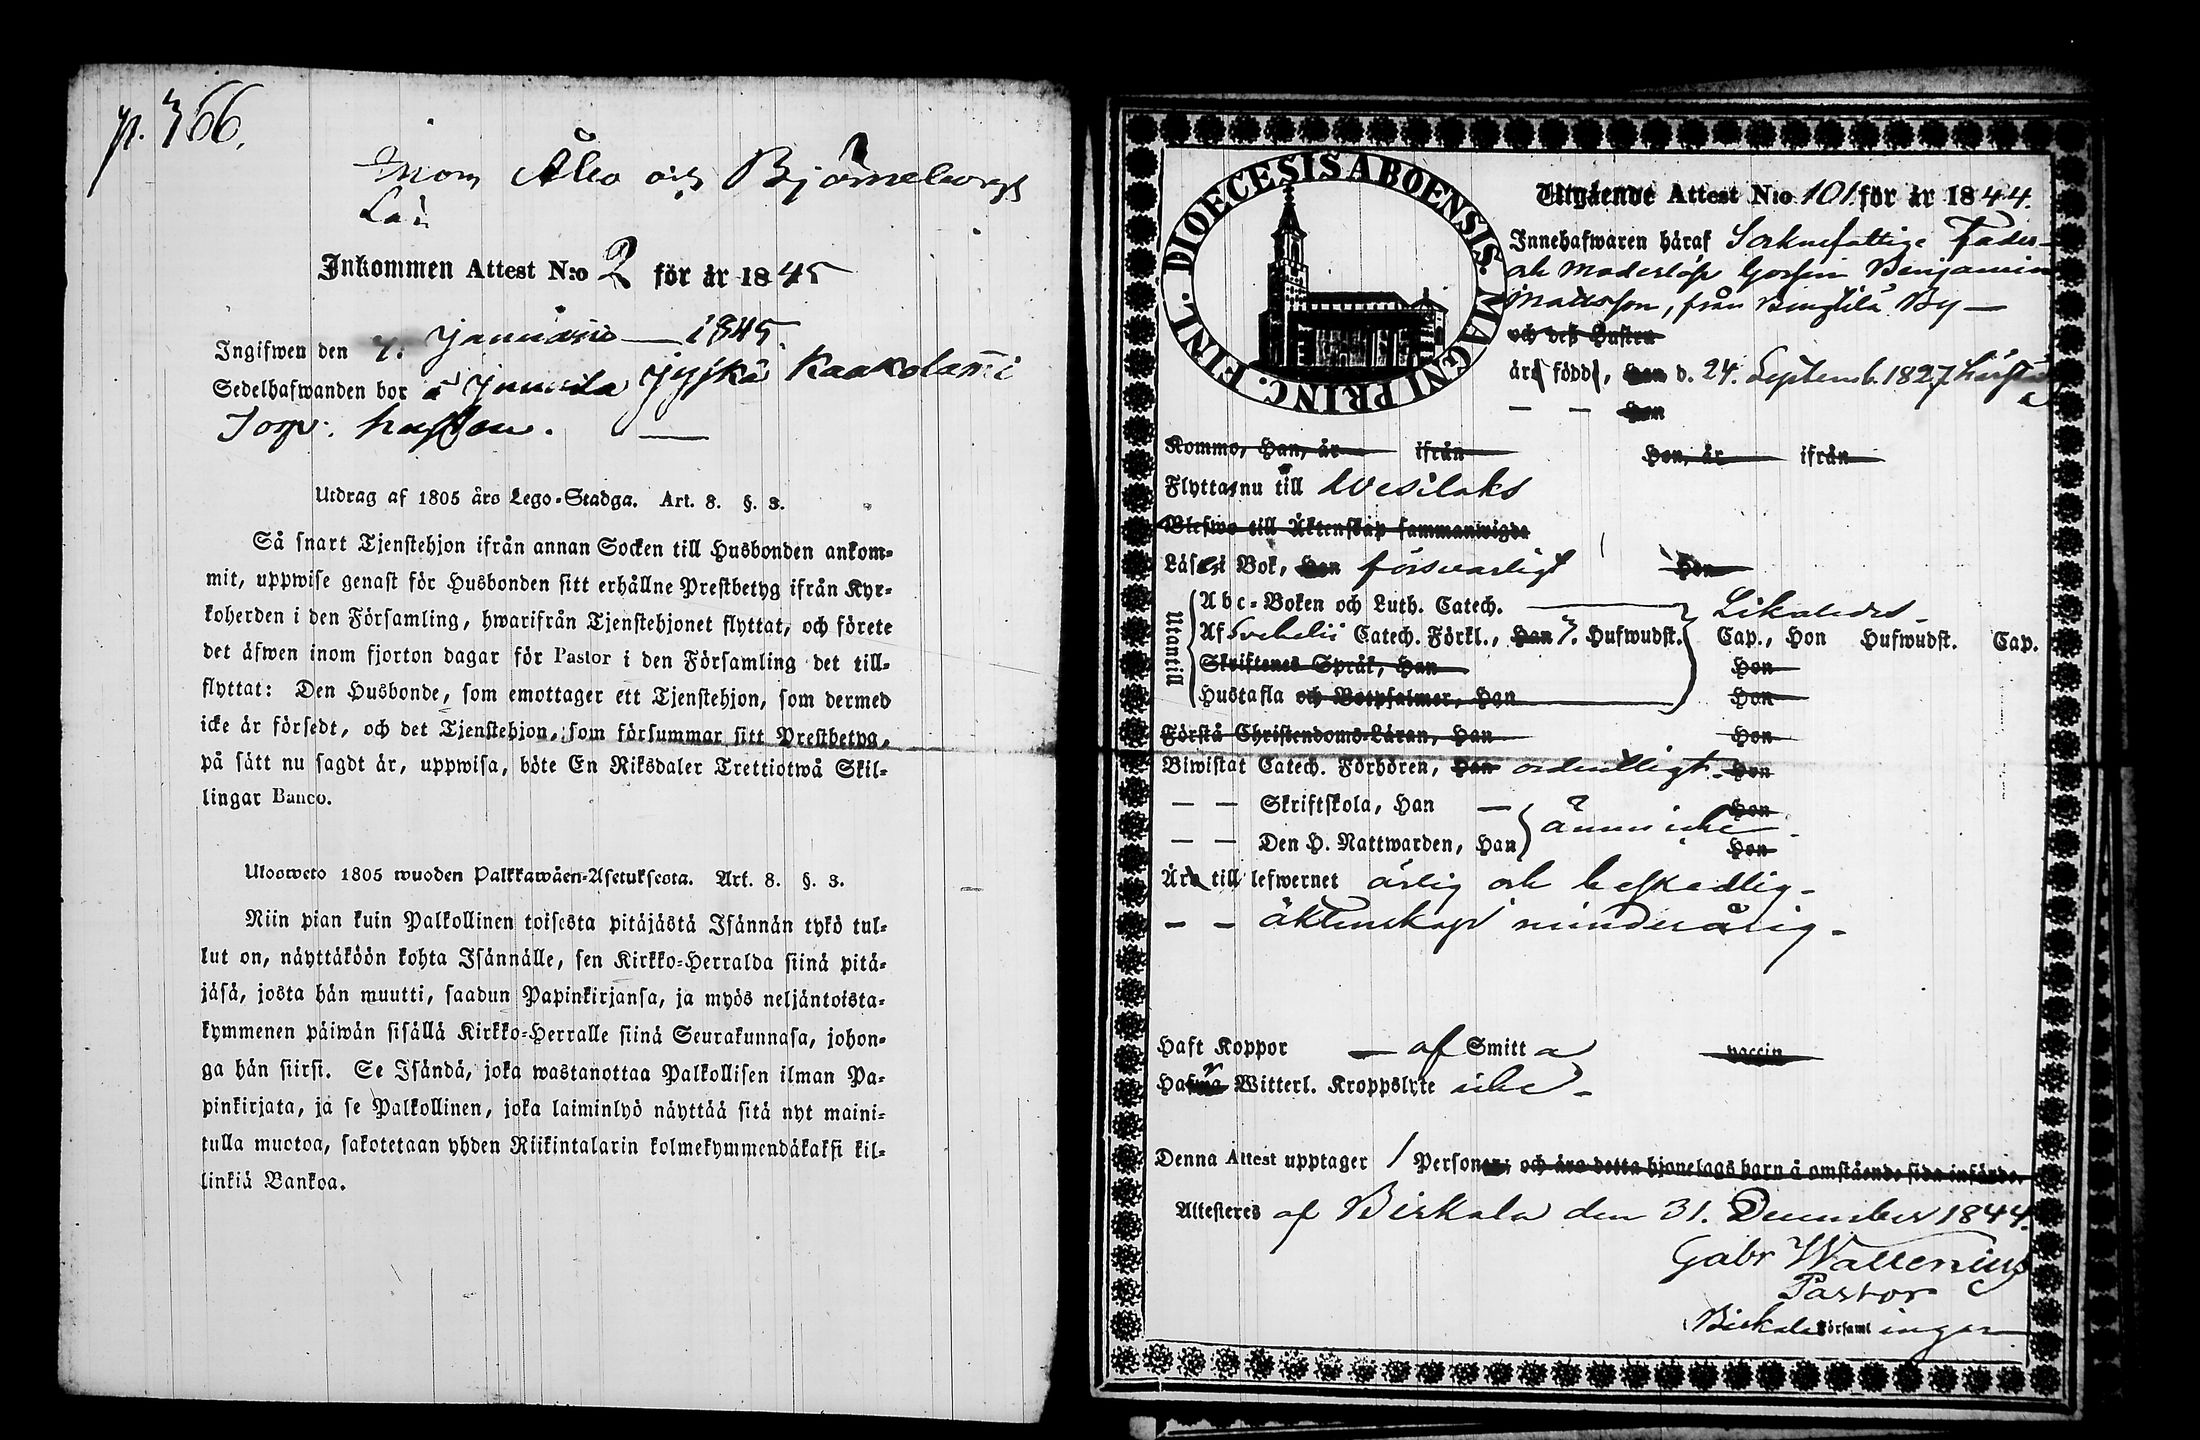 p. 366.
Inom Åbo och Björneborgs
Län
Inkommen Attest N:o 2 för år 1845
Ingifwen den 7. Januarii — 1845.
Sedelhafwanden bor å Junnila Jyskä Kaakolami
Torp. hustru.
Utdrag af 1805 års Lego-Stadga. Art. 8. §. 3.
Så snart Tjenstehjon ifrån annan Socken till Husbonden ankom-
mit, uppwise genast för Husbonden sitt erhållne Prestbetyg ifrån Kyr-
koherden i den Församling, hwarifrån Tjenstehjonet flyttat, och förete
det äfwen inom fjorton dagar för Pastor i den Församling det till-
flyttat: Den Husbonde, som emottager ett Tjenstehjon, som dermed
icke är försedt, och det Tjenstehjon, som försummar sitt Prestbetyg,
på sätt nu sagdt är, uppwisa, böte En Riksdaler Trettiotwå Skil-
lingar Banco.
Uloswето 1805 wuoden Palkkawäen-Asetuksesta. Art. 8. §. 3.
Niin pian kuin Palkollinen toisesta pitäjästä Isännän tykö tul-
lut on, näyttäköön kohta Isännälle, sen Kirkko-Herralda siinä pitä-
jäsä, josta hän muutti, saadun Papinkirjansa, ja myös neljäntoista-
kymmenen päiwän sisällä Kirkko-Herralle siinä Seurakunnasa, johon-
ga hän siirsi. Se Isändä, joka wastanottaa Palkollisen ilman Pa-
pinkirjata, ja se Palkollinen, joka laiminlyö näyttää sitä nyt maini-
tulla muotoa, sakotetaan yhden Riikintalarin kolmekymmendäkaksi kil-
linkiä Bankoa.
DIOECESIS ABOENSIS. MAGNI PRINC. FINL.
Utgående Attest N:o 101 för år 1844.
Innehafwaren häraf Socknefattige Fader-
och Moderlöse Gossen Benjamin
Mattsson, från By —
och deß Hustru
äro född, han d. 24. Septemb. 1827 härstädes
— — Hon
Komme, Han, år ifrån Hon, år ifrån
Flytta nu till Wesilaks
Blefwo till Äktenskap sammanwigde
Läser i Bok, Han försvarligt Hon
Utantill
Abc-Boken och Luth. Catech. Likaledes
Af Svebelii Catech. Förkl., Han 7. Hufwudst. Cap., Hon Hufwudst. Cap.
Skriftenes Språk, Han Hon
Hustafla och Botpsalmer, Han Hon
Förstå Christendoms-Läran, Han Hon
Biwistat Catech. Förhören, Han ordentligt. Hon
— — Skriftskola, Han — Hon
ännu icke
— — Den H. Nattwarden, Han Hon
Äro till lefwernet ärlig och beskedlig —
— — äktenskap minderårig —
Haft Koppor — af Smitta vaccin
Hafwa Witterl. Kroppslyte icke —
Denna Attest upptager 1 Personer; och äro detta hjonelags barn å omstående sida införde.
Attesteres af Birkala den 31. December 1844.
Gabr Wallenius
Pastor
Birkala Församlingar